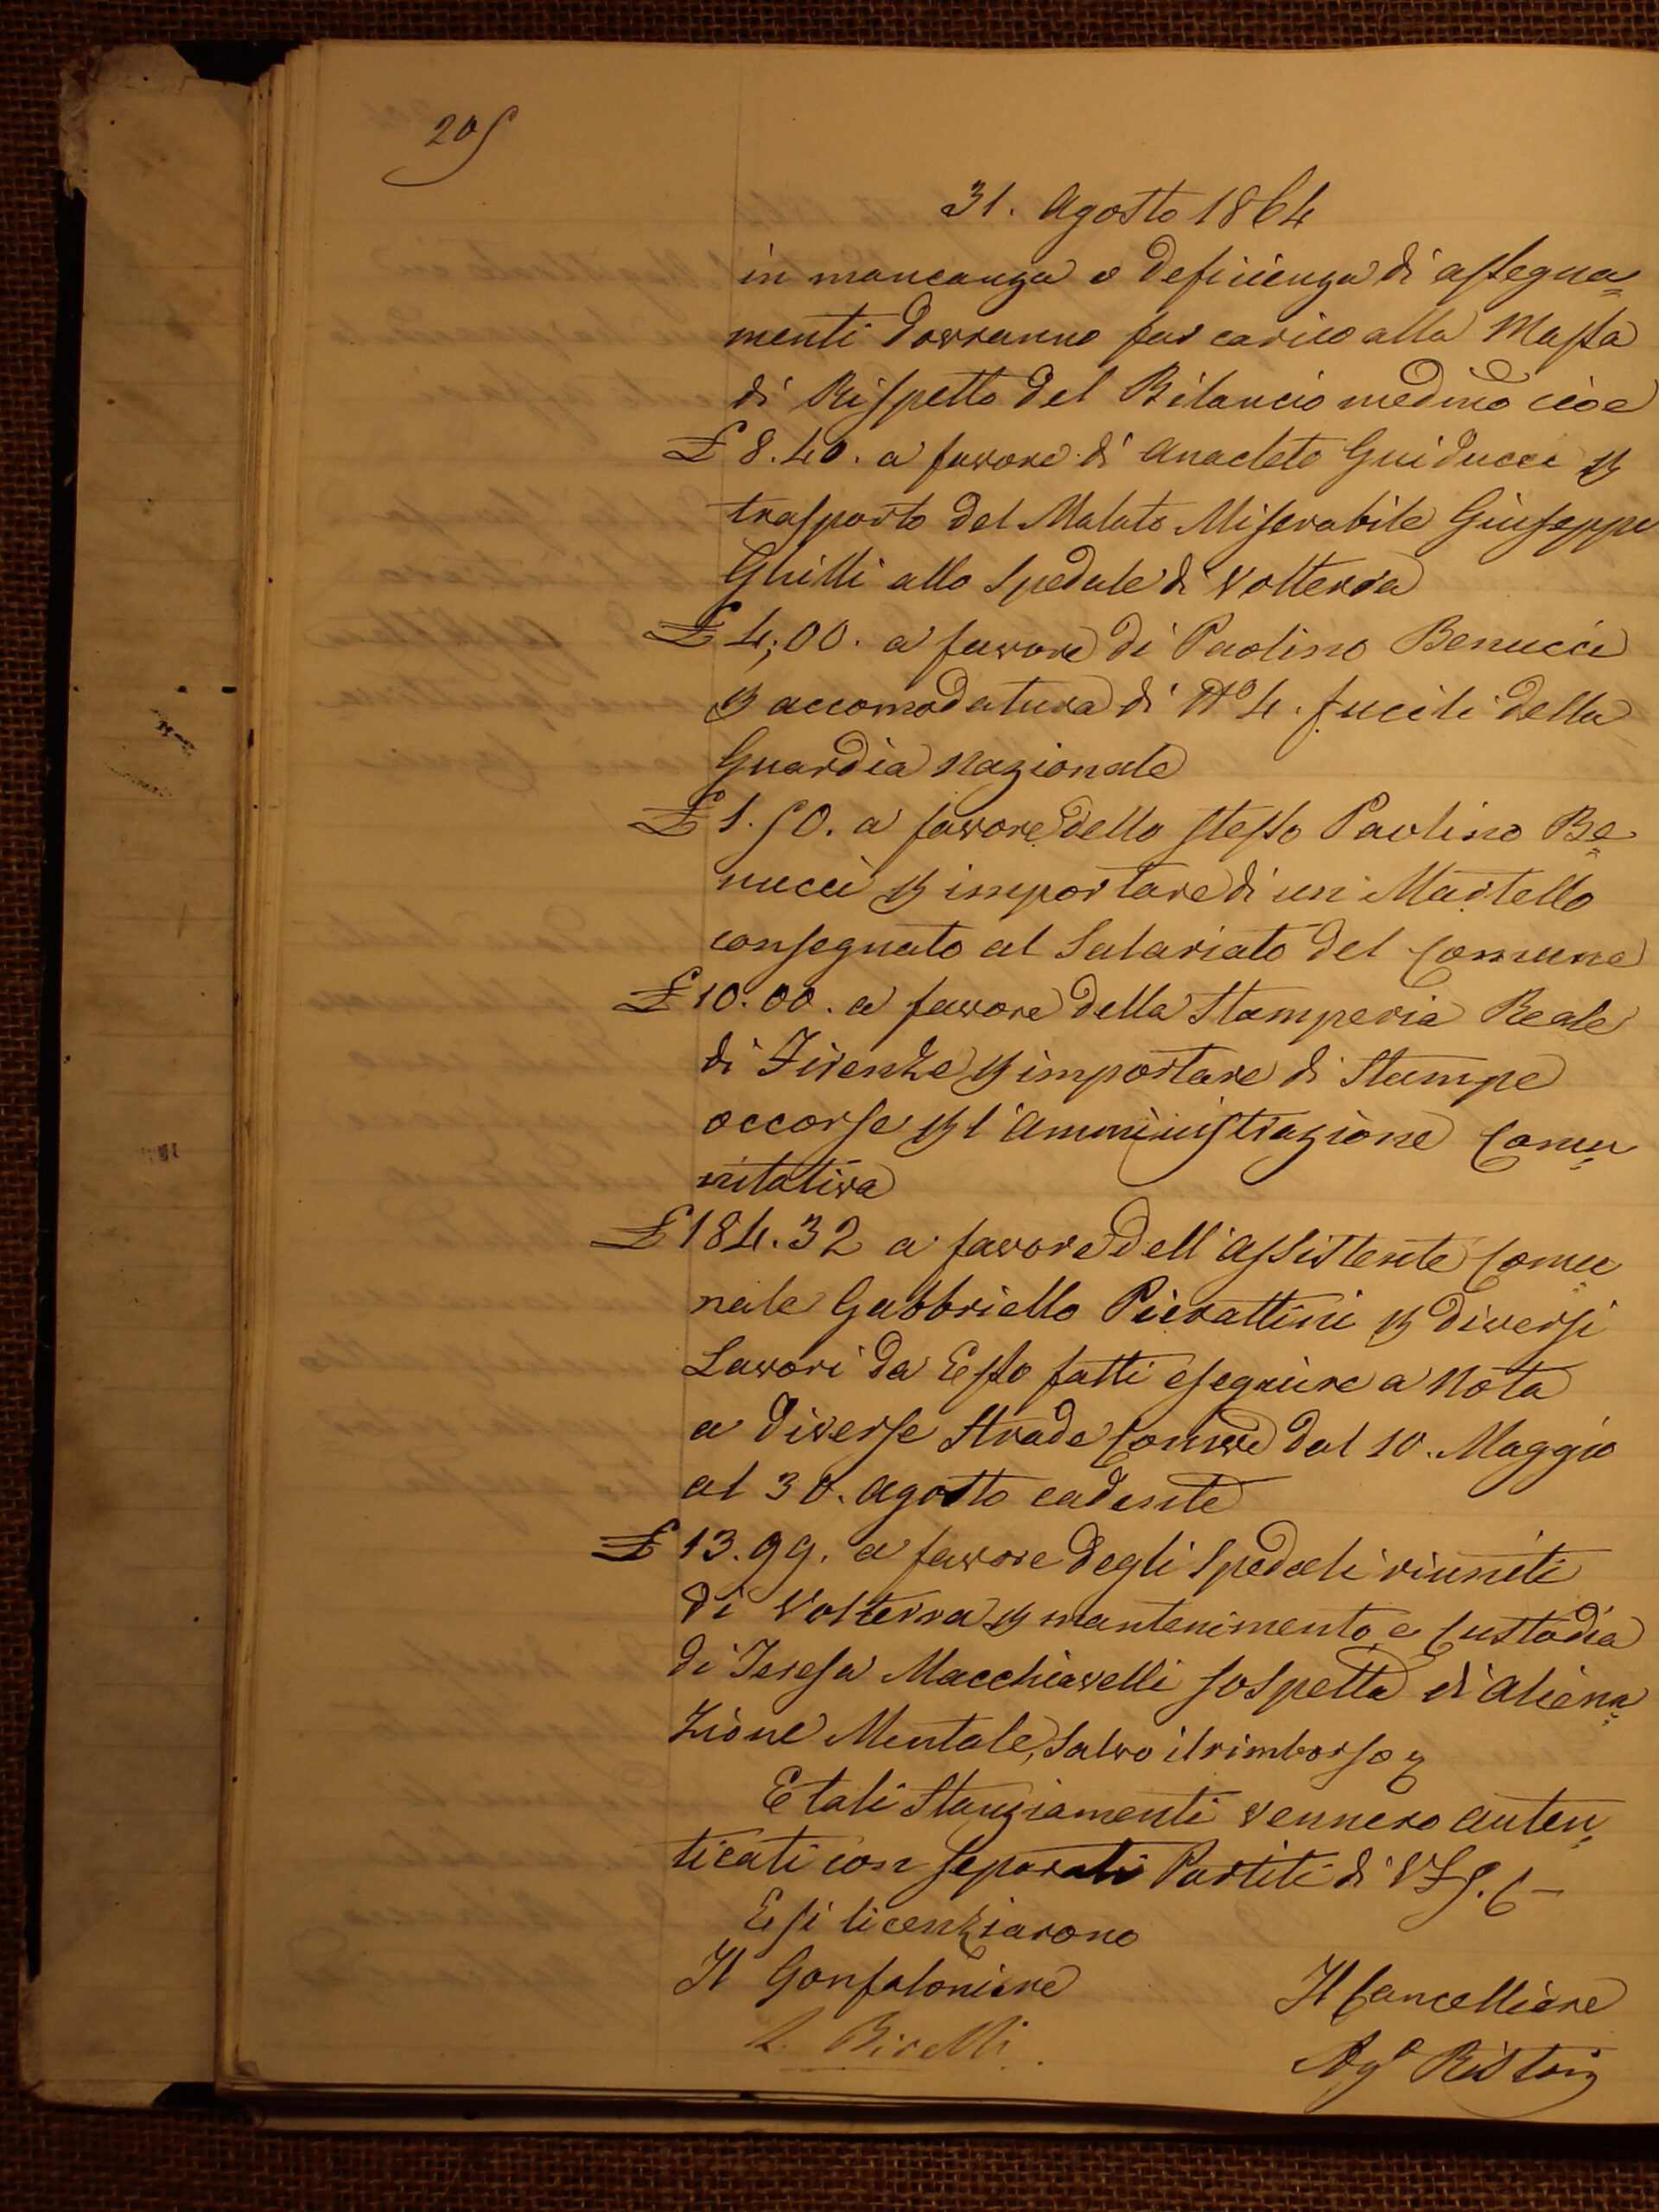 205
31. Agosto 1864
in mancanza o deficienza di assegna=
menti dovranno far carico alla Massa
di Rispetto del Bilancio medmo cioe
£ 8.40. a favore di Anacleto Guiducci p
trasporto del Malato Miserabile Giuseppe
Ghilli allo Spedale di Volterra
£ 4,00. a favore di Paolino Benucci
p accomodatura di No 4. fucili della
Guardia Nazionale
£ 1.50. a favore dello stesso Paolino Be=
nucci p importare di un Martello
consegnato al Salariato del Comune
£ 10.00. a favore della Stamperia Reale
di Firenze p importare di Stampe
occorse p l'Amministrazione Comu=
nitativa
£ 184.32 a favore dell'Assistente Comu
nale Gabbriello Pierattini p diversi
Lavori da Esso fatti eseguire a Nota
a diverse Strade Comve dal 10. Maggio
al 30. Agosto cadente
£ 13.99. a favore degli Spedali riuniti
di Volterra p mantenimento e Custodia
di Teresa Macchiavelli sospetta di Aliena=
zione Mentale, Salvo il rimborso
E tali Stanziamenti vennero auten=
ticati con separati Partiti di
E si licenziarono
Il Gonfaloniere
Il Cancelliere